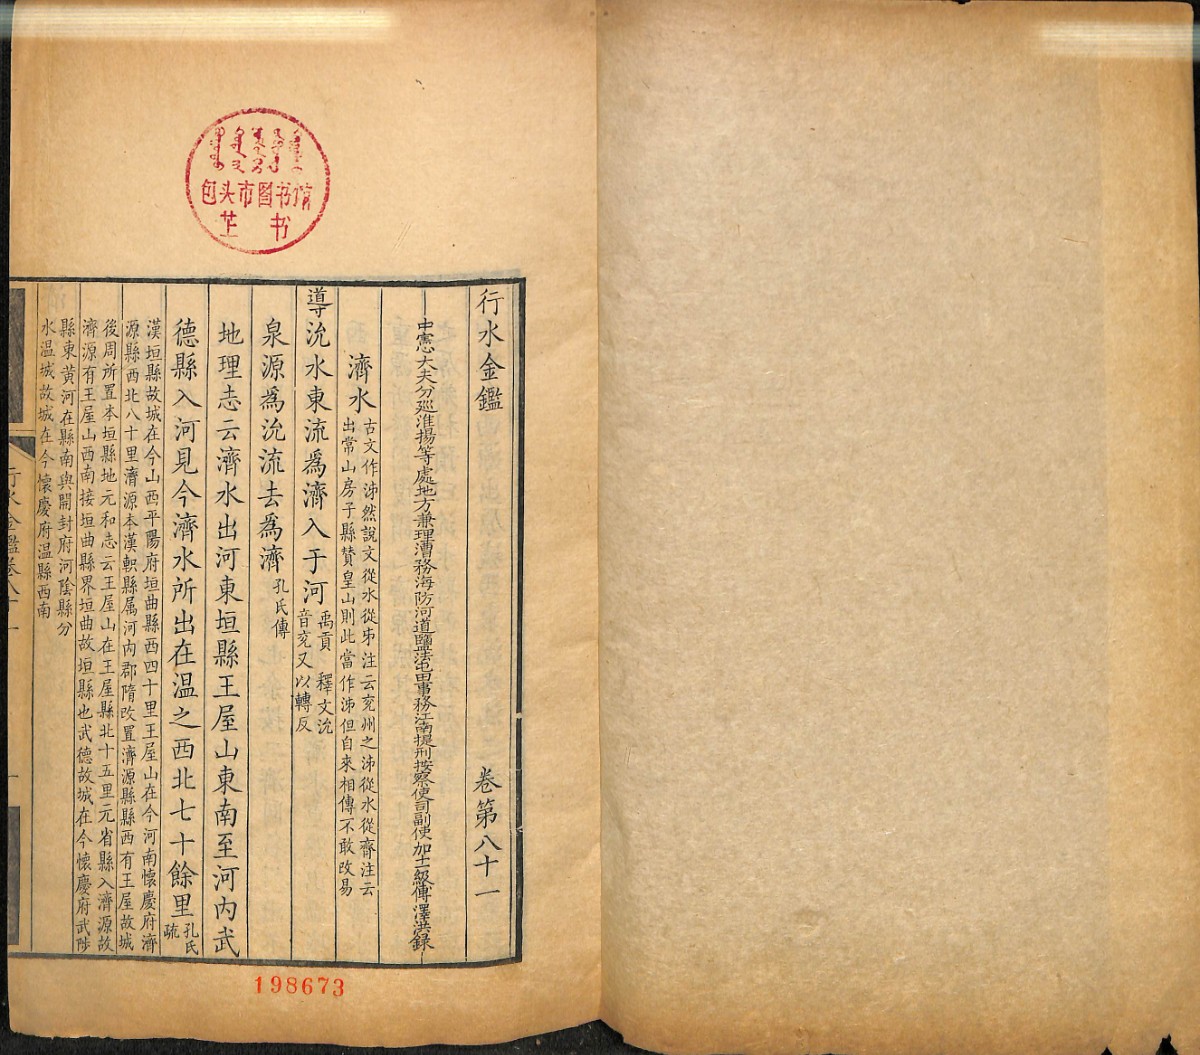 包头市图书馆
芷书
行水金鑑 卷第八十一
中憲大夫分巡淮揚等處地方兼理漕務海防河道鹽法屯田事務江南提刑按察使司副使加二級傅澤洪錄
濟水
古文作泲然說文從水從𠂔注云兗州之泲從水從齊注云
出常山房子縣贊皇山則此當作泲但自來相傳不敢改易
導沇水東流爲濟入于河
禹貢 釋文沇
音兗又以轉反
泉源爲沇流去爲濟
孔氏傳
地理志云濟水出河東垣縣王屋山東南至河內武
德縣入河見今濟水所出在温之西北七十餘里
孔氏
疏
漢垣縣故城在今山西平陽府垣曲縣西四十里王屋山在今河南懷慶府濟
源縣西北八十里濟源本漢軹縣屬河內郡隋改置濟源縣縣西有王屋故城
後周所置本垣縣地元和志云王屋山在王屋縣北十五里元省縣入濟源故
濟源有王屋山西南接垣曲縣界垣曲故垣縣也武德故城在今懷慶府武陟
縣東黄河在縣南與開封府河陰縣分
水温城故城在今懷慶府温縣西南
行水金鑑卷八十一
一
198673